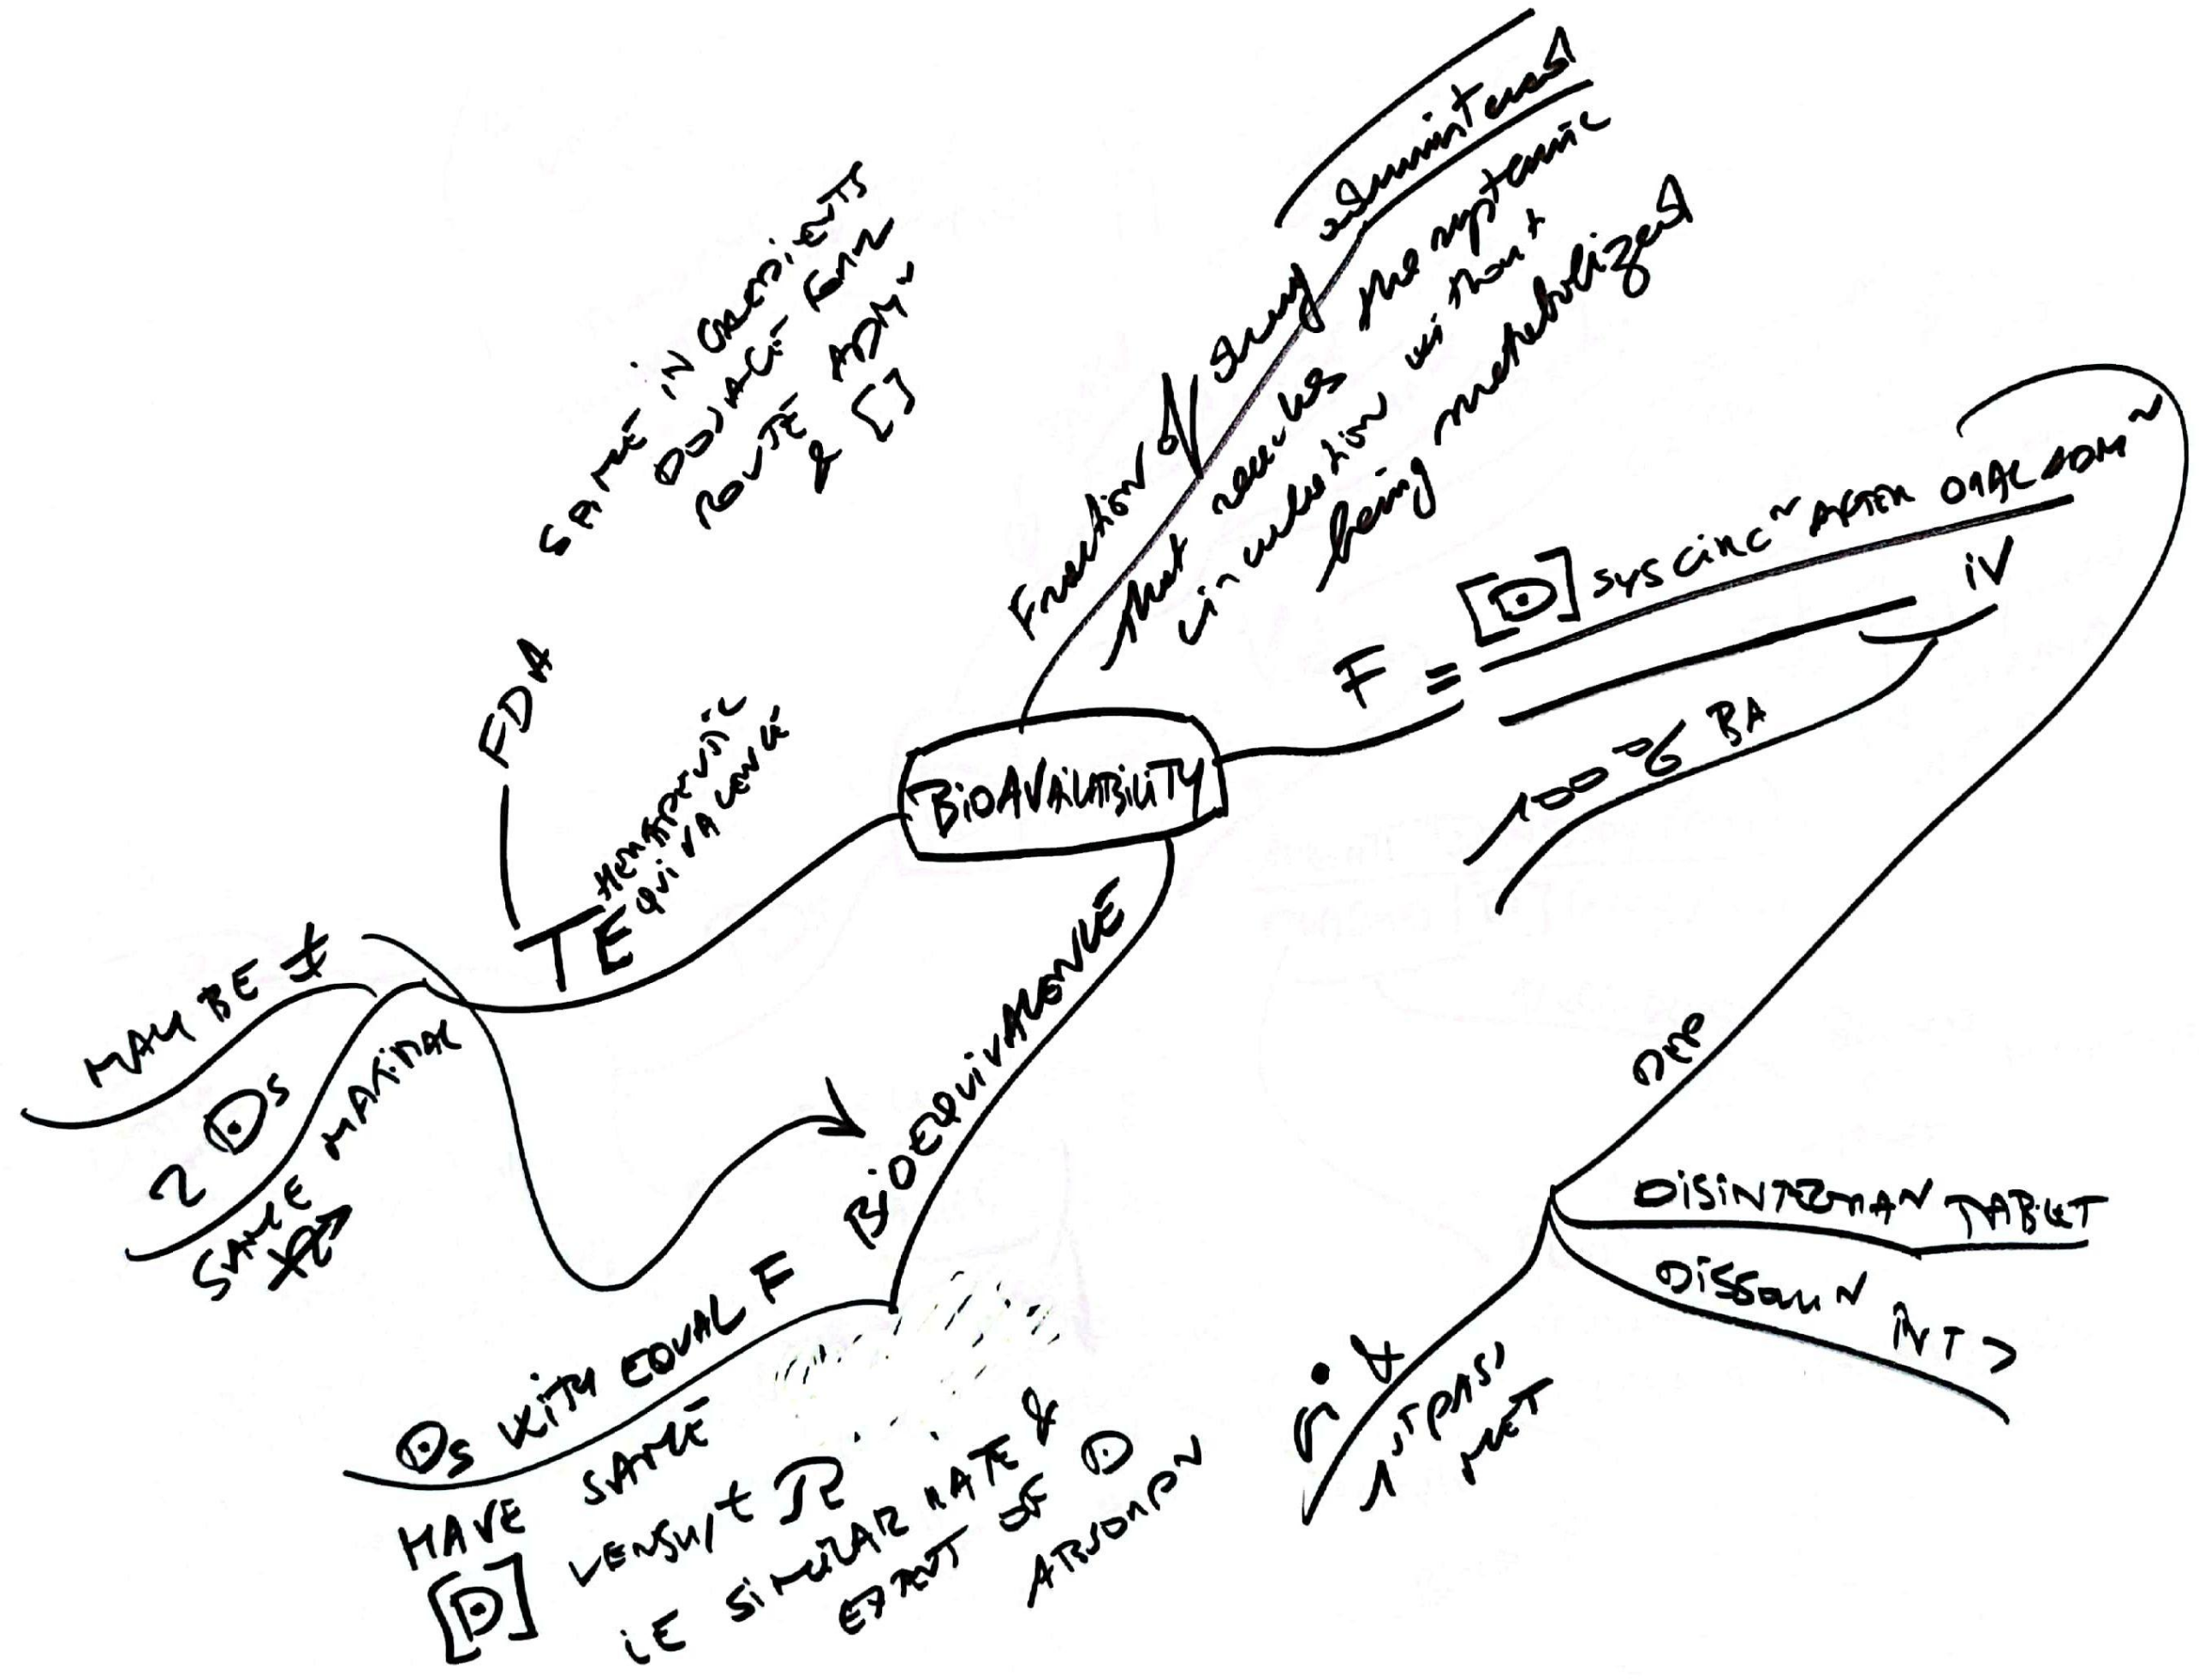 BIOAVAILABILITY
Fraction of drug administered
that reaches the systemic
circulation without
being metabolized
F = [D] SYS CIRC~ AFTER ORAL ADM~
IV
100% BA
DEP
DISINTEGRAN TABLET
DISSOLUN INT
1ST PASS
MET
BIOEQUIVALENCE
Ds WITH EQUAL F
HAVE SAME
[D] VERSUS t
IE SIMILAR RATE &
EXTENT OF D
ABSORPN
THERAPEUTIC
TE QUIVALENCE
FDA
SAME INGREDIENTS
DOSAGE FORM
ROUTE ADM~
& []
MAY BE ≠
2 Ds
SAME MAXIMAL